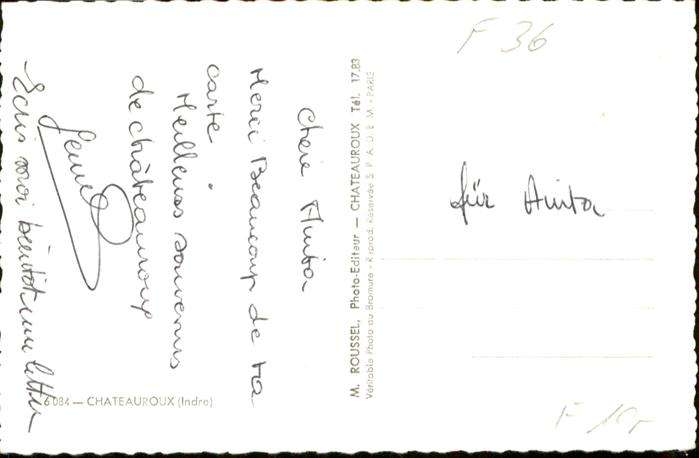 Chère Anita
Merci Beaucoup de ta
carte.
Meilleurs souvenirs
de châteauroux
Ecris moi bientôt une lettre
6084 — CHATEAUROUX (Indre)
M. ROUSSEL, Photo-Editeur — CHATEAUROUX Tél. 17.83
Véritable Photo au Bromure - Reprod. Réservée S. P. A. D. E. M. - PARIS
F 36
für Anita